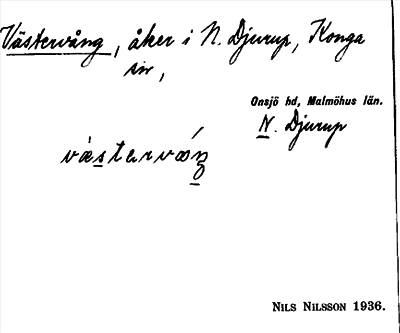 Västervång, åker i N. Djurup, Konga
sn,
Onsjö hd, Malmöhus län.
N. Djurup
NILS NILSSON 1936.